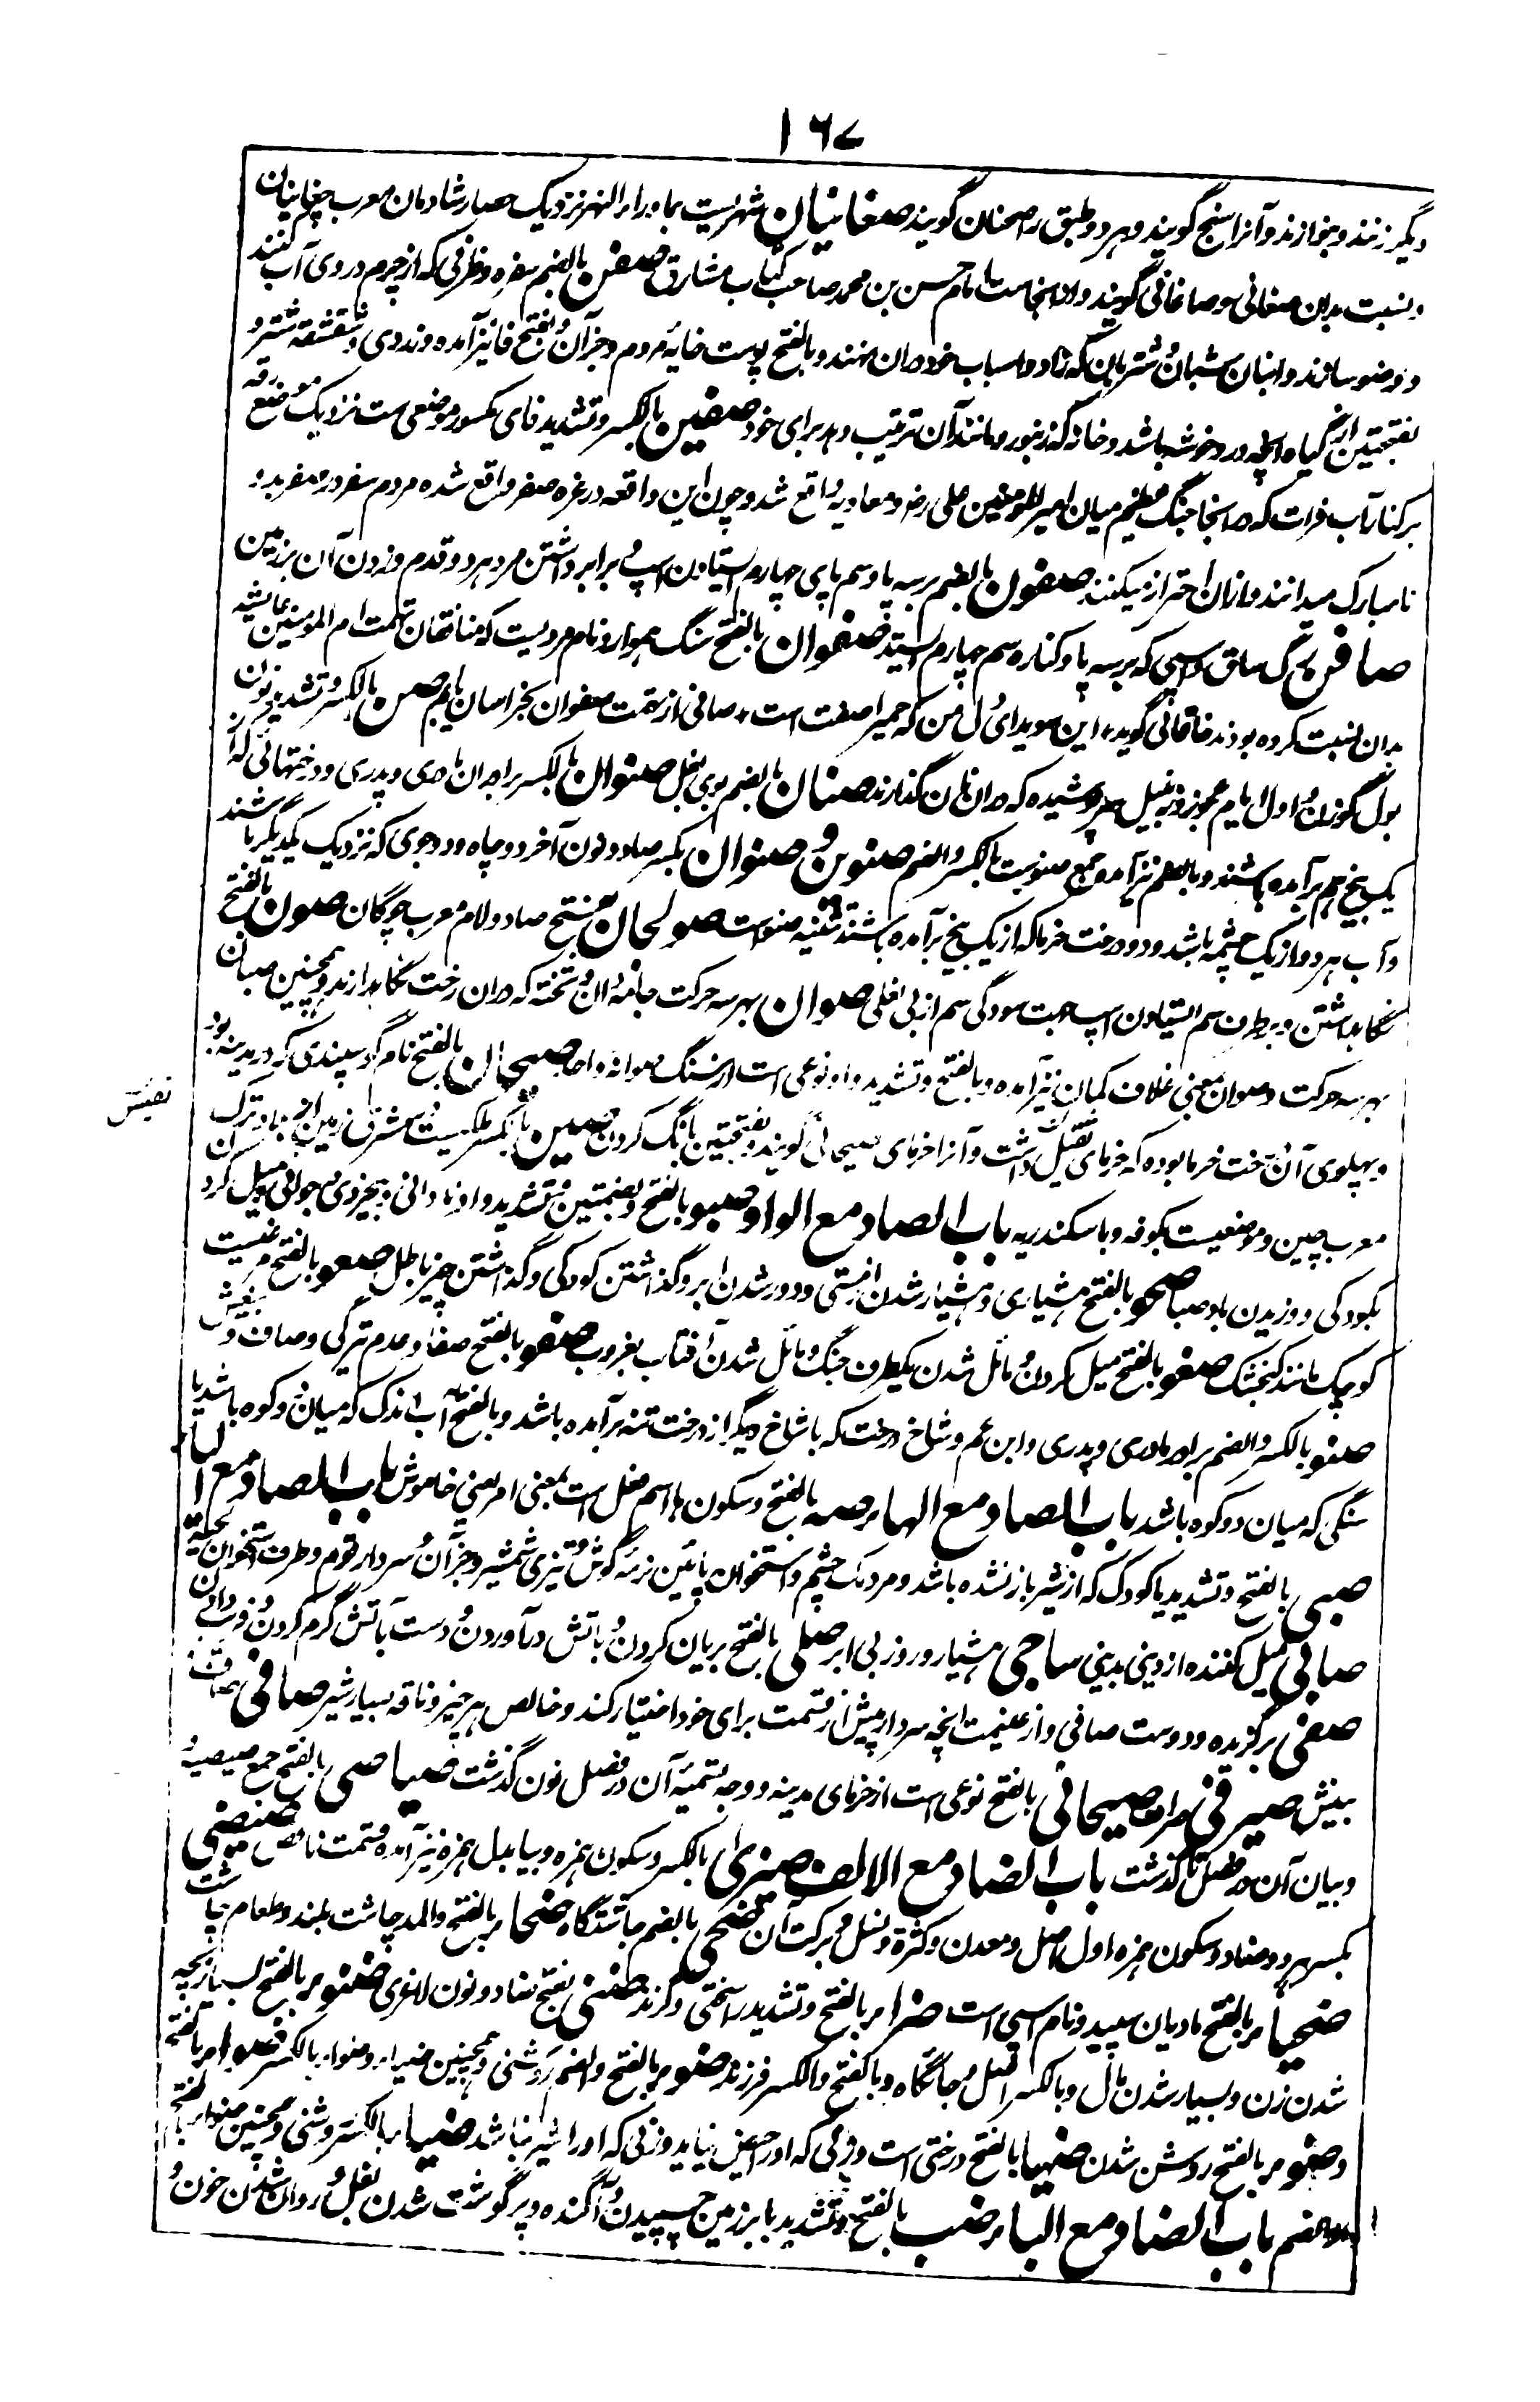 ۱۶۷
دیگر زنند و بنوازند و آنرا سنج گویند و هر دو طبق را صحنان گویند صغانیان شهریست بماوراءالنهر نزدیک حصار شادمان معرب چغانیان
و نسبت بدان صغانی و صاغانی گویند و از اینجاست امام حسن بن محمد صاحب کتاب مشارق صفن بالضم سفره و ظرفی که از چرم در وی آب کنند
و وضو سازند و انبان شبان و شتربان که زاد و اسباب خود دران نهند و بالفتح پوست خایه مردم و جز آن و بفتح فا نیز آمده و نددی و شقشقه شتر و
بفتحتین از گیاه انچه در و خوشه باشد و خانه که زنبور و مانند آن ترتیب دهد برای خود صفین بالکسر و تشدید فای مکسور موضعی ست نزدیک موضع رقه
بر کنار آب فرات که در اینجا جنگ عظیم میان امیرالمومنین علی رض و معاویه واقع شد و چون این واقعه در غره صفر واقع شده مردم سفر در صفر بد و
نامبارک میدانند و ازان احتراز میکنند صفون بالضم بر سه پا و سم پای چهارم استادن اسپ و برابر داشتن مرد هر دو قدم و زدن آن بر زمین
صافن رگ ساق و اسپی که بر سه پا و کناره سم چهارم استد صفوان بالفتح سنگ هموار و نام مردیست که منافقان تهمت ام المومنین عایشه
بدان نسبت کرده بودند خاقانی گوید این سویدای دل من که حمیرا صفت است صافی از تهمت صفوان بخراسان یابم صن بالکسر و تشدید نون
بول گوزن و اول ایام عجوز و زنبیل سرپوشیده که دران نان گذارند صنان بالضم بوی بغل صنوان بالکسر برادران مادری و پدری و درختهائی که از
یک بیخ بهم برآمده باشند و بالضم نیز آمده جمع صنوست بالکسر و الضم صنوین و صنوان بکسر صاد و نون آخر دو چاه و دو جوی که نزدیک یکدیگر باشند
و آب هر دو از یک چشمه باشد و دو درخت خرما که از یک بیخ برآمده باشند تثنیه صنو است صولجان بفتح صاد و لام معرب چوگان صون بالفتح
نگاهداشتن و بر طرف سم استادن اسپ بجهت سودگی سم از بی نعلی صوان بهر سه حرکت جامه دان و تخته که دران رخت نگاهدارند و همچنین صیان
بهر سه حرکت و صوان بمعنی غلاف کمان نیز آمده و بالفتح و تشدید واو نوعی است از سنگ صوانه واحد صیحان بالفتح نام گوسپندی که در مدینه بود
و بپهلوی آن درخت خرما بوده که خرمای ثقیل داشت و آنرا خرمای صیحانی گویند و بفتحتین بانگ کردن صین بالکسر ملکیست مشرق زمین از بلاد ترک
نفیس
معرب چین و موضعیست بکوفه و باسکندریه باب الصاد مع الواو صبو بالفتح و بضمتین و تشدید واو نادانی و بیخردی و جوانی و میل کردن
بکودکی و وزیدن باد صبا صحو بالفتح هشیاری و هشیار شدن از مستی و دور شدن ابر و گذاشتن کودکی و گذاشتن چیز باطل صعو بالفتح مرغیست
کوچک مانند کنجشک صغو بالفتح میل کردن و مائل شدن یکطرف حنک و مائل شدن آفتاب بغروب صفو بالفتح صفا و عدم تیرگی و صاف و بیغش
صنو بالکسر و الضم برادر مادری و پدری و ابن عم و شاخ درخت که با شاخ دیگر از درخت تنه برآمده باشد و بالفتح آب اندک که میان دو کوه باشد یا
سنگی که میان دو کوه باشد باب الصاد مع الهاء صه بالفتح و سکون ها اسم فعل است بمعنی امر یعنی خاموش باب الصاد مع الیا
صبی بالفتح و تشدید یا کودک که از شیر باز نشده باشد و مردمک چشم و استخوان پائین نرمه گوش و تیزی شمشیر و جز آن و سردار قوم و طرف استخوان لحیه
صابی میل کننده از دینی بدینی صاحی هشیار و روز بی ابر صلی بالفتح بریان کردن و بآتش درآوردن و دست بآتش گرم کردن و فریب دادن
صفی برگزیده و دوست صافی و از غنیمت انچه سردار پیش از قسمت برای خود اختیار کند و خالص هر چیز و ناقه بسیار شیر صافی صاف
بیغش صیرفی صراف صیحانی بالفتح نوعی است از خرمای مدینه و وجه تسمیه آن در فصل نون گذشت صیاصی بالفتح جمع صیصیه
و بیان آن در فصل تا گذشت باب الضاد مع الالف ضیزی بالکسر و سکون همزه و بیا بدل همزه نیز آمده قسمت ناقص ضئضئی
بکسر هر دو ضاد و سکون همزه اول اصل و معدن و کثرة و نسل و برکت آن ضحی بالضم چاشتگاه ضحاء بالفتح و المد چاشت بلند و طعام چاشت
ضحیاء بالفتح مادیان سپید و نام اسپی است ضراء بالفتح و تشدید را سختی و گزند ضنی بفتح ضاد و نون لاغری ضنوء بالفتح بسیار بچه
شدن زن و بسیار شدن مال و بالکسر اصل و جایگاه و بالفتح و الکسر فرزند ضوء بالفتح و الضم روشنی و همچنین ضیاء و ضواء بالکسر ضواء بالفتح
و ضوء بالفتح روشن شدن ضهیا بالفتح درختی است و زنی که او را حیض نیاید و زنی که او را شیر نباشد ضیاء بالکسر روشنی و همچنین ضواء بالفتح
و الضم باب الضاد مع الباء ضب بالفتح و تشدید با بر زمین چسپیدن و آگنده و پر گوشت شدن بغل و روان شدن خون و